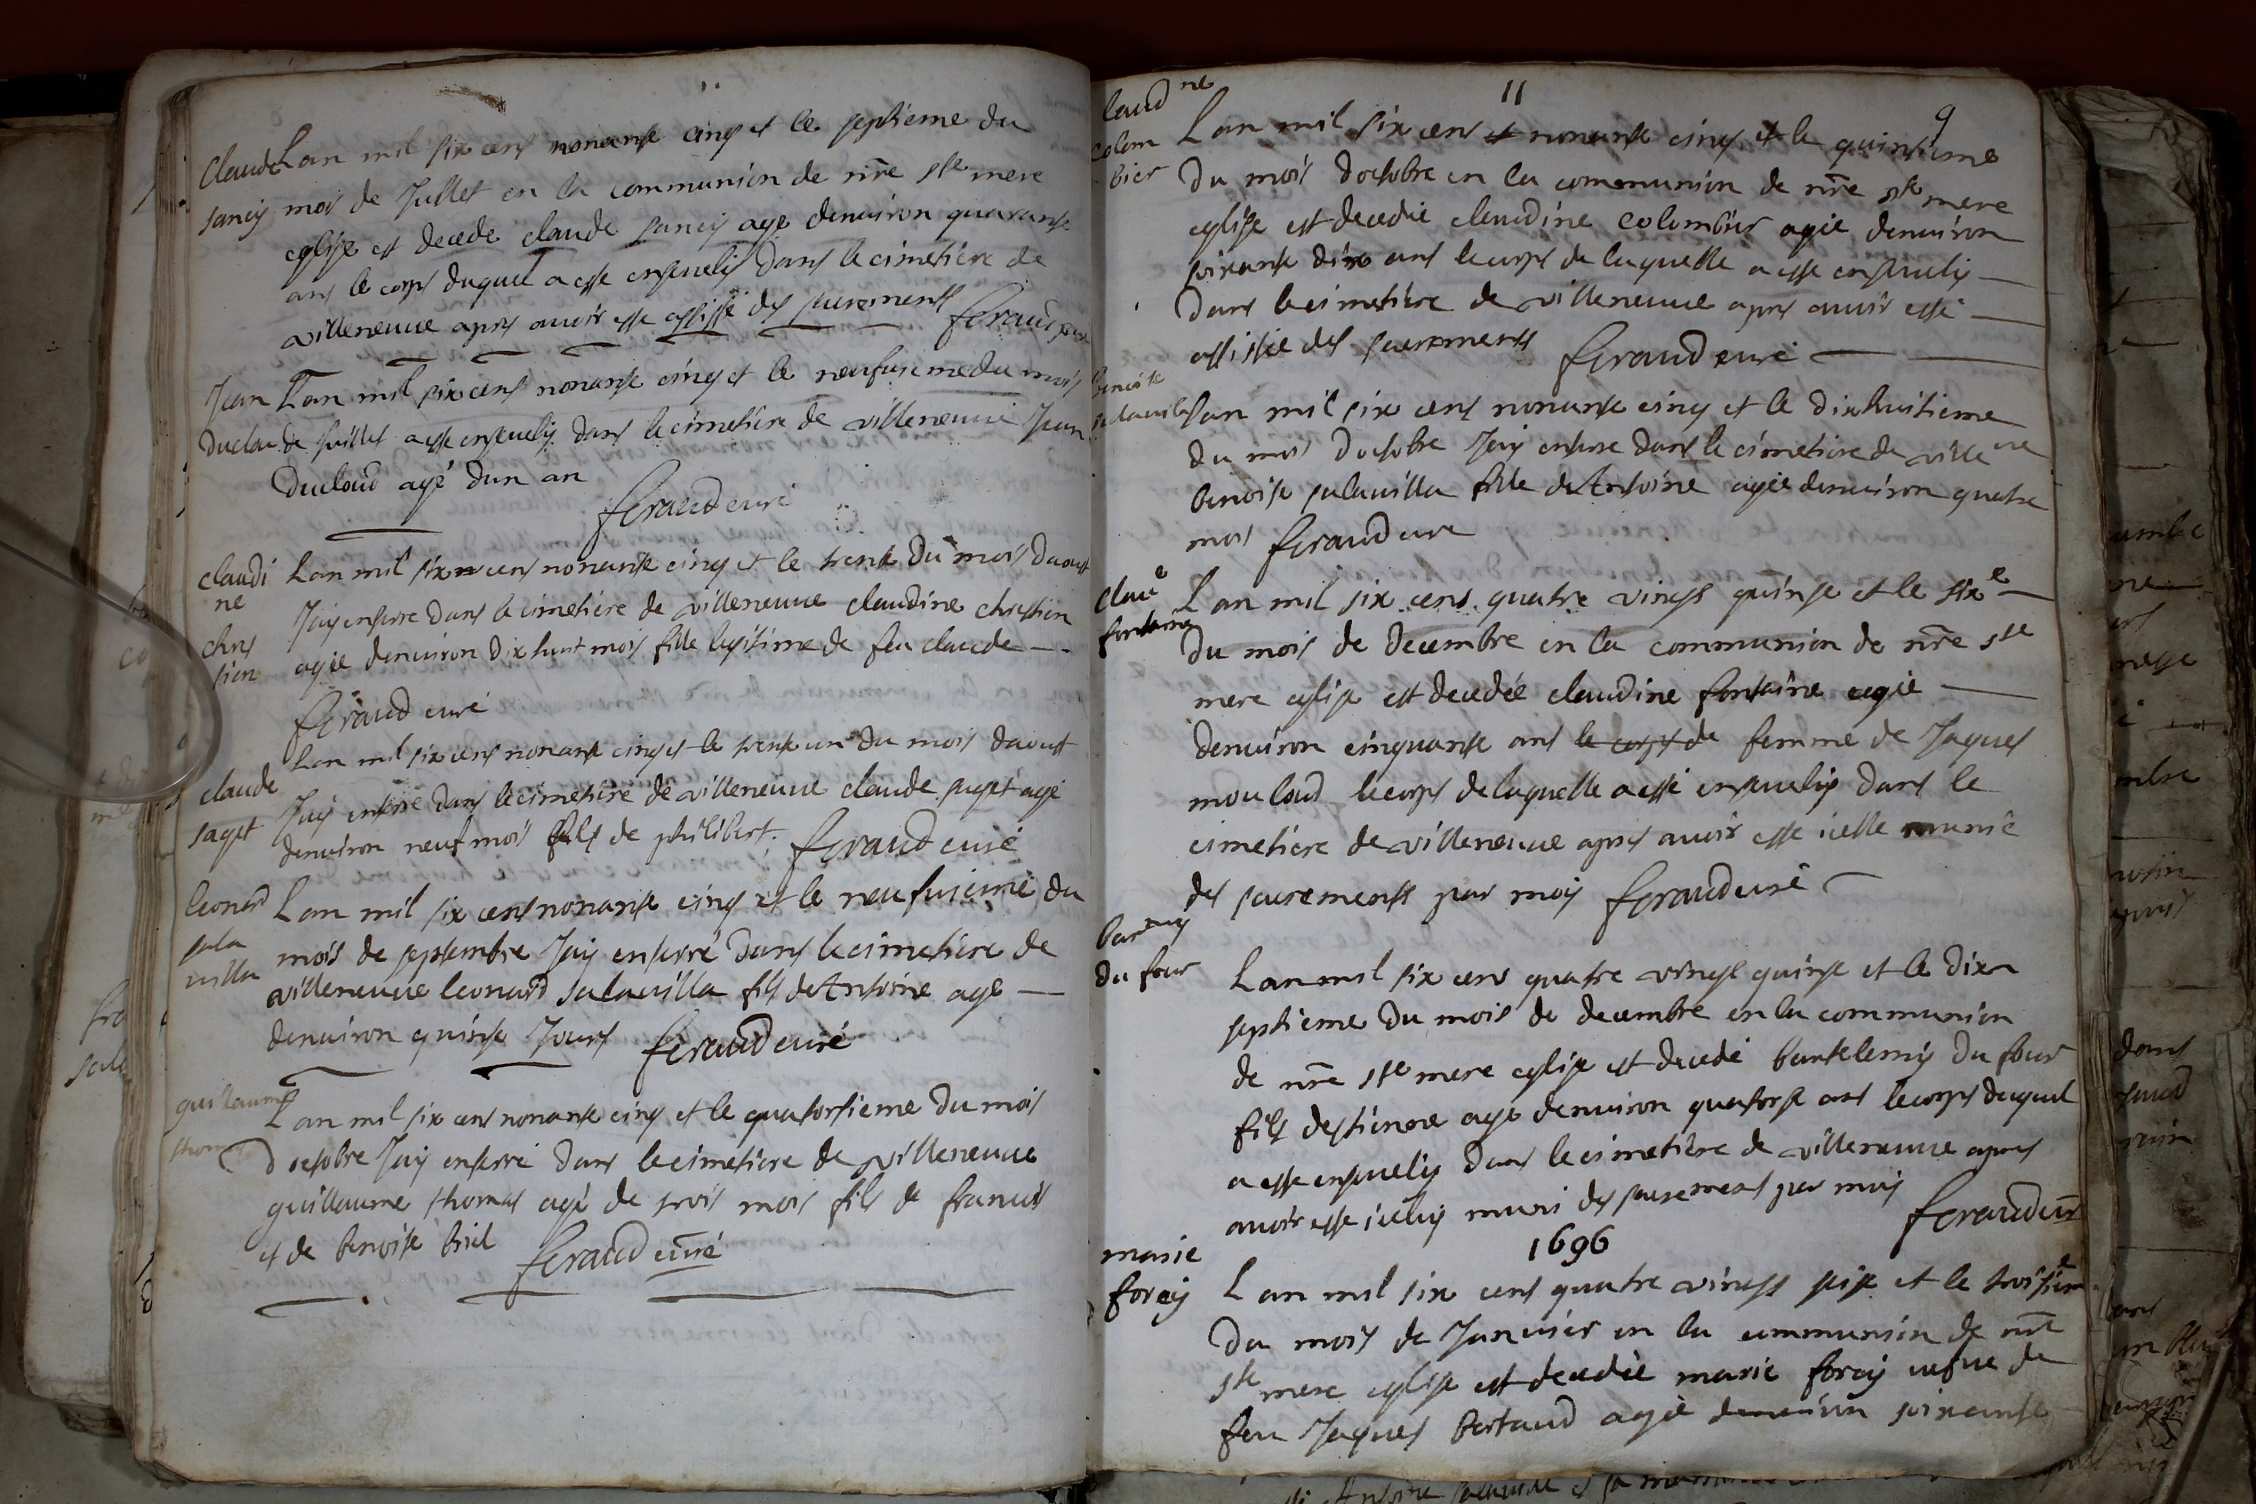 Claude
Sancy
Lan mil six cens nonante cinq et le septieme du
mois de Jullet en la communion de nre ste mere
eglise est decede claude sancy age denuiron quarante
ans le corps duquel a esse enseuely dans le cimetiere de
villeneuue apres auoir esse assisse des sacrements feraud
Jean
Duclou
Lan mil six cens nonante cinq et le neufuieme du mois
de Juillet a esse enseuely dans le cimetiere de villeneuue Jean
Ducloud agé dun an
feraud curé
claudi
ne
chres
tien
Lan mil six cens nonante cinq et le trente du mois daoust
Jay enterre dans le cimetiere de villeneuue claudine chrestien
agée denuiron dix huit mois fille legitime de feu claude
feraud curé
claude
saget
Lan mil six cens nonante cinq et le trente un du mois daoust
Jay enterre dans le cimetiere de villeneuue claude saget agé
denuiron neuf mois fils de philibert. feraud curé
leonard
sala
uilla
Lan mil six cens nonante cinq et le neufuieme du
mois de septembre Jay enterré dans le cimetiere de
villeneuue leonard salauilla fils de Antoine age
denuiron quinse Jours feraud curé
guillaume
thomas
Lan mil six cens nonante cinq et le quatorsieme du mois
d octobre Jay enterré dans le cimetiere de villeneuue
guillaume thomas agé de trois mois fils de francois
et de benoite briel feraud curé
11
9
Claud ne
colom
bier
Lan mil six cens et nonante cinq et le quinsieme
du mois doctobre en la communion de nre ste mere
eglise est decedée claudine colombier agée denuiron
soixante dix ans le corps de laquelle a esse enseuely
dans le cimetiere de villeneuue apres auoir esse
assistée des sacrements feraud curé
benoite
salauilla
Lan mil six cens nonante cinq et le dixhuitieme
du mois doctobre Jay enterre dans le cimetiere de villeneuue
benoite salauilla fille de Antoine agée denuiron quatre
mois feraud cure
Clau e
fontaine
Lan mil six cens quatre vings quinse et le six e
du mois de decembre en la communion de nre ste
mere eglise est decedée claudine fontaine agée
denuiron cinquante ans le corps de femme de Jaques
mouloud le corps de laquelle a esse enseuely dans le
cimetiere de villeneuue apres auoir esse icelle munie
des sacrements par moy feraud curé
bar my
du four
Lan mil six cens quatre vings quinse et le dix
septieme du mois de decembre en la communion
de nre ste mere eglise est decedé bartelemy du four
fils destienne agé denuiron quatorse ans le corps duquel
a esse enseuely dans le cimetiere de villeneuue apres
auoir esse iceluy muni des sacremens par moy
feraud curé
1696
marie
forey
Lan mil six cens quatre vings seise et le troisieme
du mois de Januier en la communion de nre
ste mere eglise est decedée marie forey uefue de
feu Jaques bertaud agée denuiron soixante